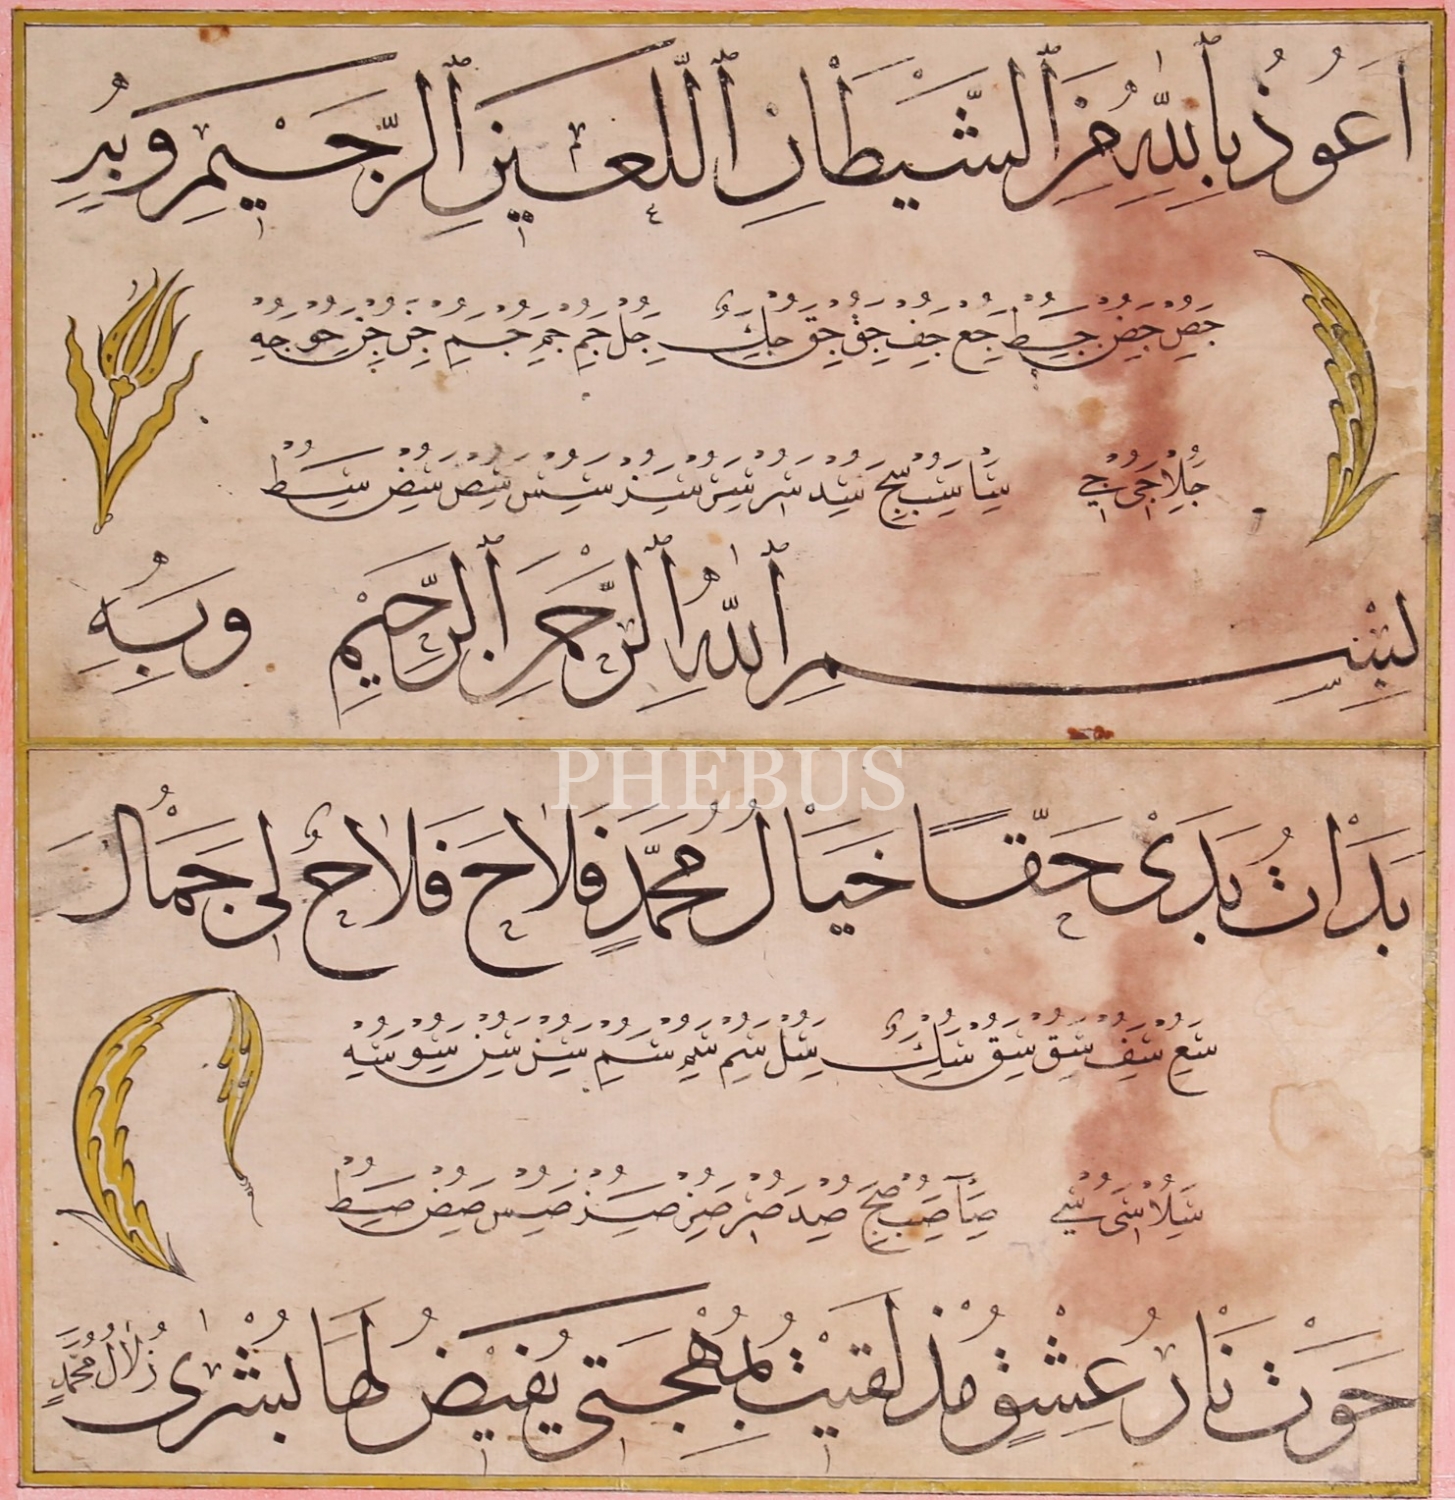 اَعُوذُ بِاللّٰهِ مِنَ الشَّيْطَانِ اللَّعِينِ الرَّجِيمِ وَبِهِ
جص جض جط جع جف جق جق جك جل جم جم جم جن جن جو جه
جلا جى جي سا سب سج سد سر سز سس سص سض سط
بِسْمِ اللّٰهِ الرَّحْمٰنِ الرَّحِيمِ وَبِهِ
PHEBUS
بَدَاتُ بَدَىْ حَقًّا خَيَالُ مُحَمَّدٍ فَلَاحَ فَلَاحٌ لِى جَمَالَ
سع سف سق سق سك سل سم سم سم سن سن سو سه
سلا سى سي صا صب صج صد صر صز صس صض صط
حَوَتْ نَارُ عِشْقٍ مُذْ لَقِيتُ بِمُهْجَتِى يُفِيضُ لَهَا بُشْرٰى زُلَالُ مُحَمَّدٍ